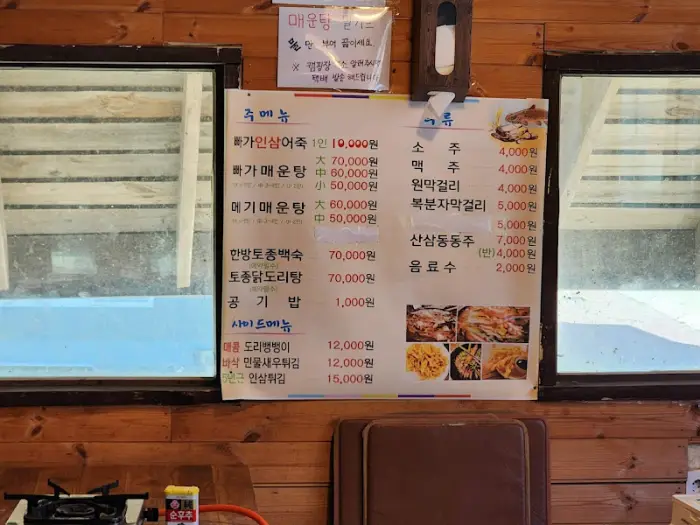 매운탕
물만 부어 끓이세요
※
택배 발송 해드립니다
주메뉴
빠가인삼어죽 1인 10,000원
빠가매운탕 大 70,000원
中 60,000원
小 50,000원
메기매운탕 大 60,000원
中 50,000원
한방토종백숙 70,000원
토종닭도리탕 70,000원
공기밥 1,000원
사이드메뉴
매콤 도리뱅뱅이 12,000원
바삭 민물새우튀김 12,000원
5년근 인삼튀김 15,000원
주류
소주 4,000원
맥주 4,000원
원막걸리 4,000원
복분자막걸리 5,000원
5,000원
산삼동동주 7,000원
(반) 4,000원
음료수 2,000원
순후추